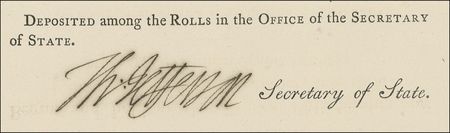 DEPOSITED among the ROLLS in the OFFICE of the SECRETARY
of STATE.
Th: Jefferson Secretary of State.